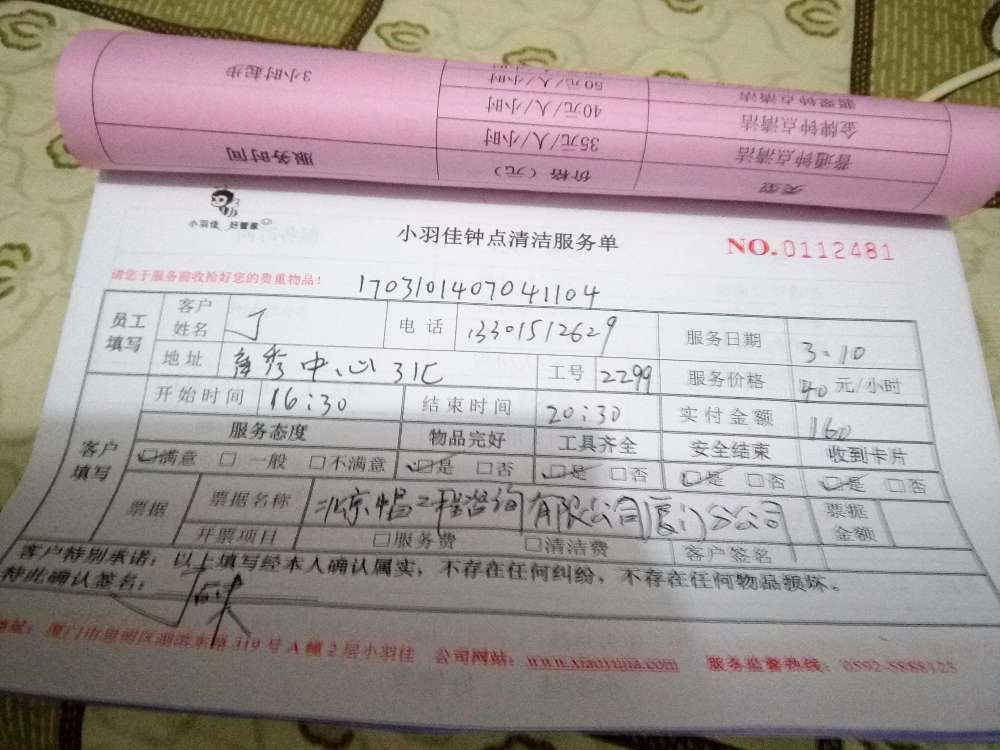 3小时起步 50元/人/小时 翡翠钟点清洁
40元/人/小时 金牌钟点清洁
35元/人/小时 普通钟点清洁
服务时间 价格（元） 类型
小羽佳 好管家
小羽佳钟点清洁服务单 NO.0112481
请您于服务前收捡好您的贵重物品！ 1703101407041104
员工填写 客户姓名 丁 电话 13301512629 服务日期 3.10
地址 中心31C 工号 2299 服务价格 40元/小时
客户填写 开始时间 16:30 结束时间 20:30 实付金额 160
服务态度 物品完好 工具齐全 安全结束 收到卡片
☑满意 □一般 □不满意 ☑是 □否 ☑是 □否 ☑是 □否 ☑是 □否
票据 票据名称 北京中昌工程咨询有限公司厦门分公司 票据金额
开票项目 □服务费 □清洁费 客户签名
客户特别承诺：以上填写经本人确认属实，不存在任何纠纷，不存在任何物品损坏。
特此确认签名：
地址：厦门市思明区湖滨东路319号A幢2层小羽佳 公司网站：www.xiaoyujia.com 服务监督热线：0592-5888125